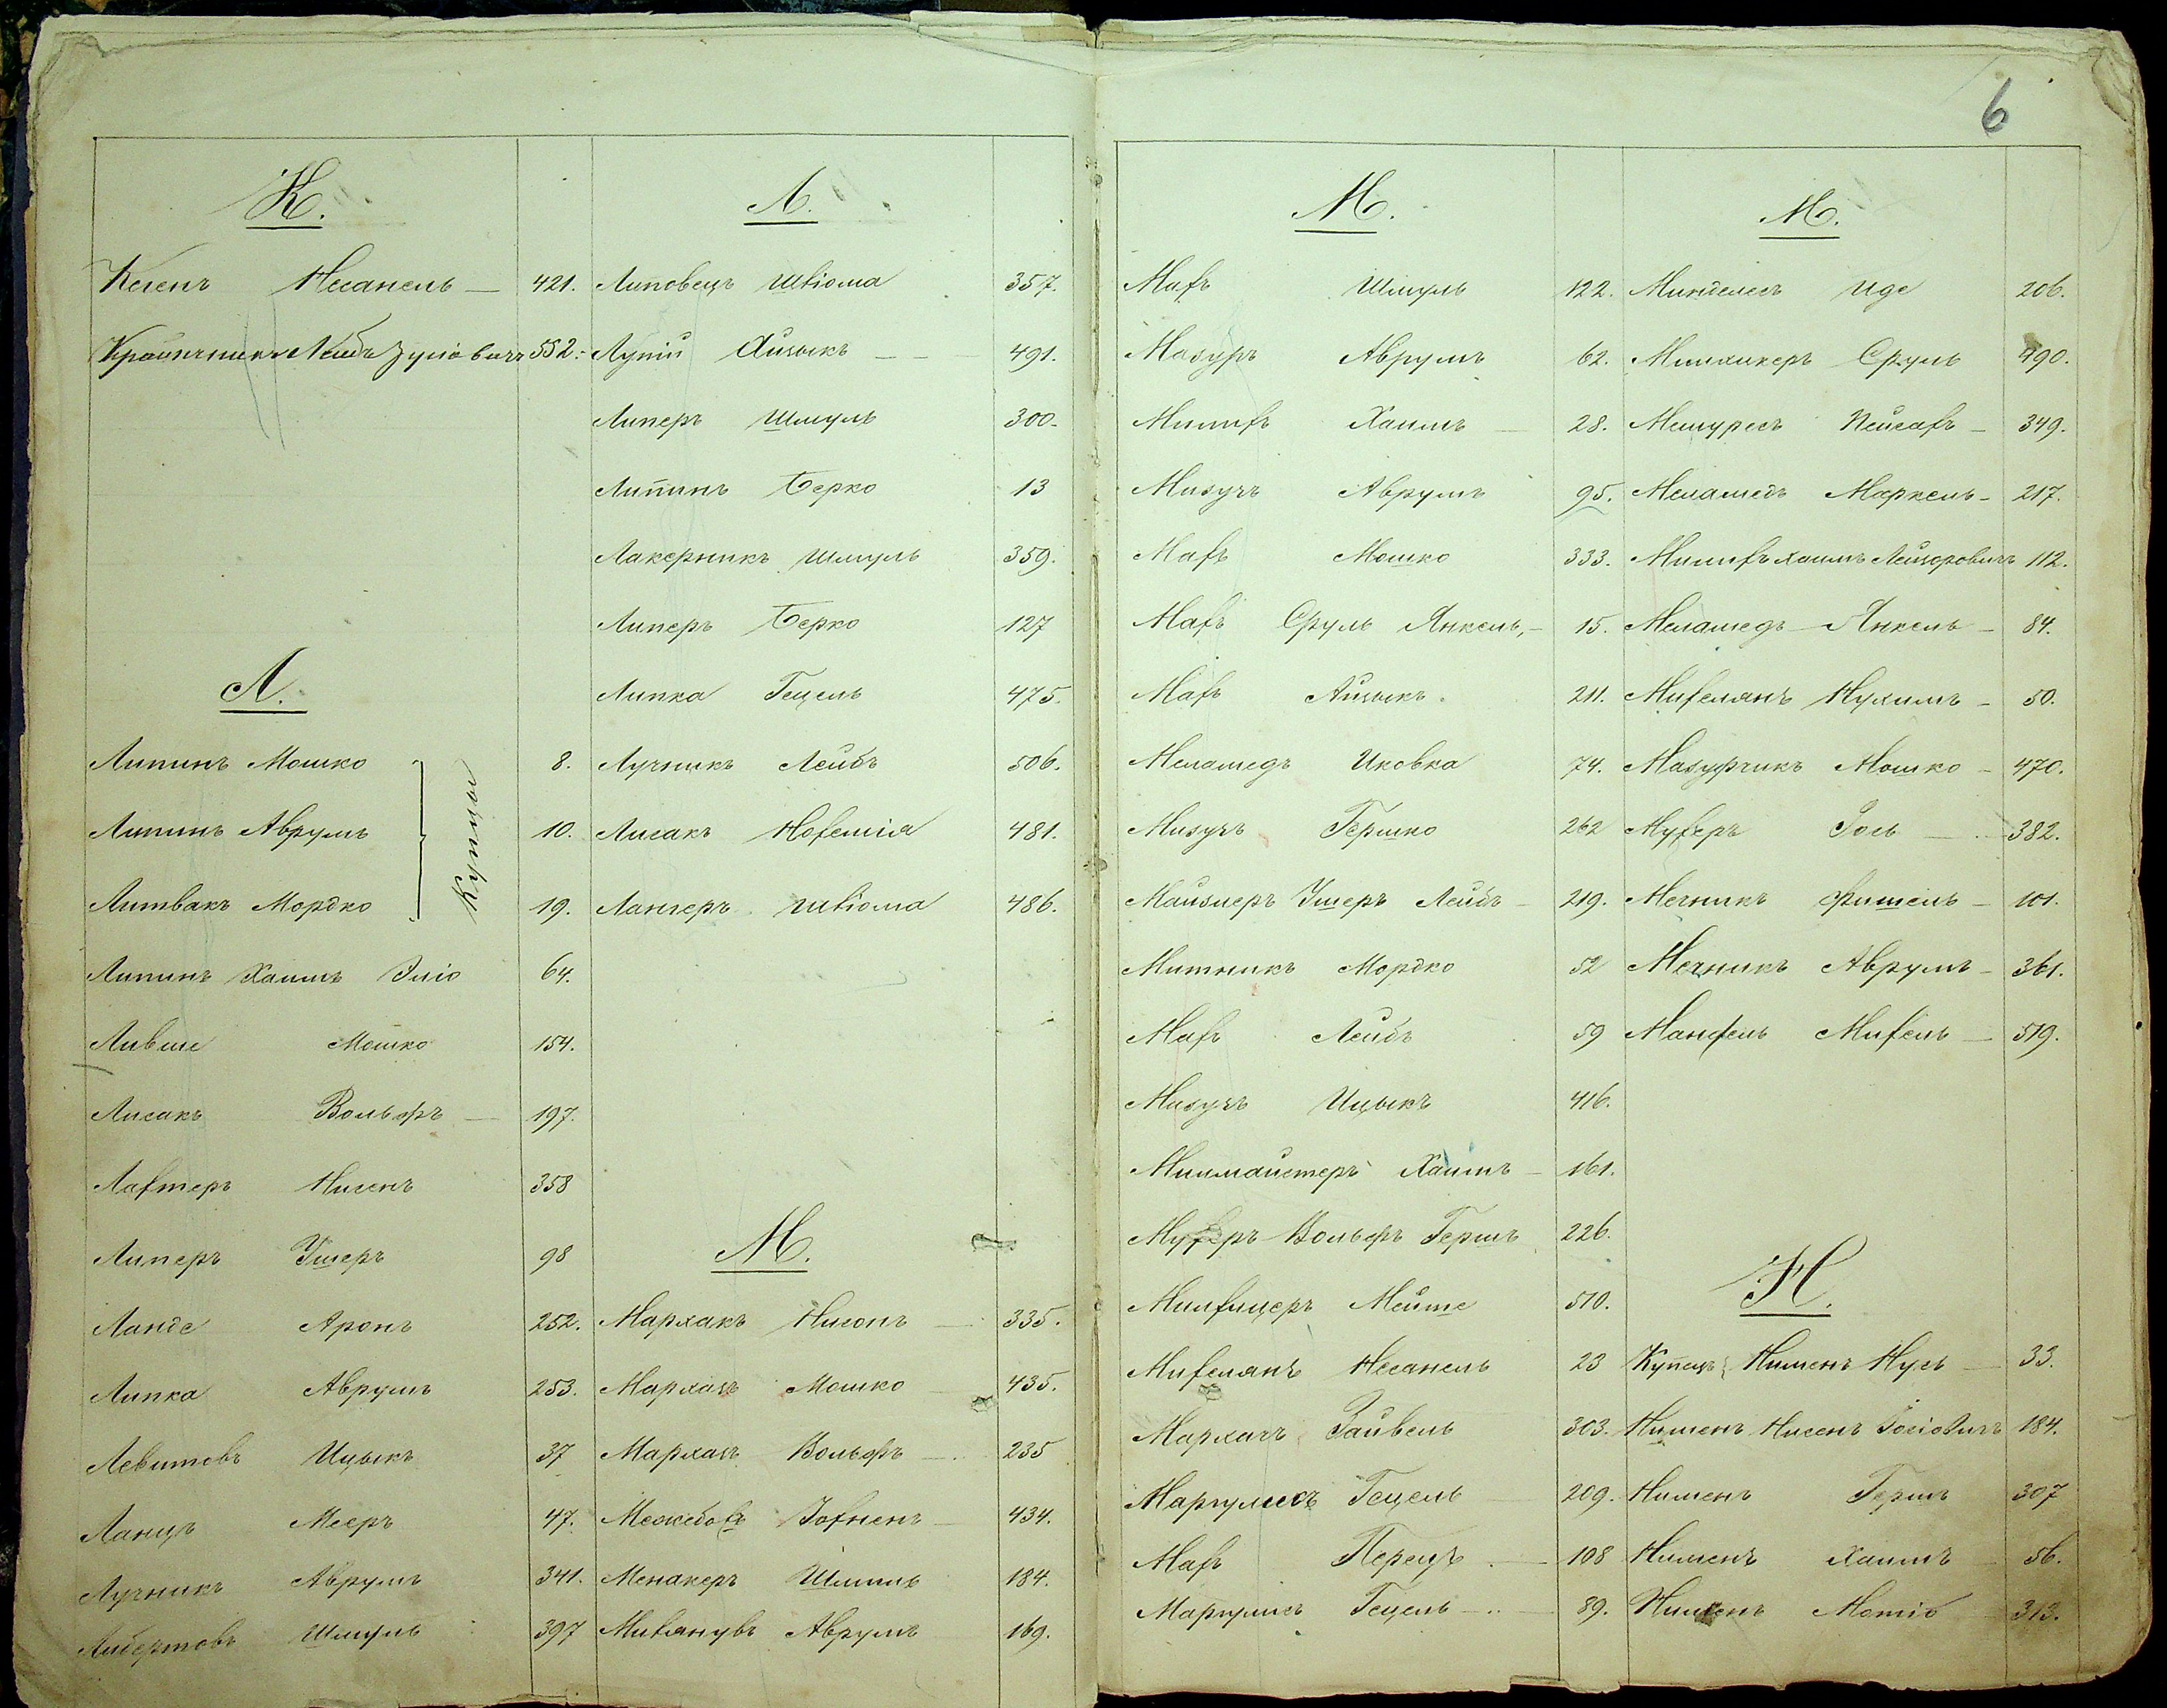 6
К.
Келенъ Несанель — 421.
Крайнчикъ Лейбъ Зуліовичъ 552.
Л.
Липинъ Мошко 8.
Липинъ Аврумъ 10.
Литвакъ Мордко 19.
Купцы
Липинъ Хаимъ Эліо 64.
Лившe Мошко 154.
Лисакъ Вольфъ — 197.
Лахтеръ Нисенъ 358
Липеръ Ушеръ 98
Ланде Аронъ 252.
Липка Аврумъ 253.
Левитовъ Ицыкъ 37
Ланцъ Мееръ 47.
Лучникъ Аврумъ 341.
Либертовъ Шмуль 397
Л.
Липовецъ Шліома 357.
Лупій Айзыкъ — 491.
Липеръ Шмуль 300.
Липинъ Берко 13
Лакерникъ Шмуль 359.
Липеръ Берко 127
Липка Гецель 475.
Лучникъ Лейбъ 506.
Лисакъ Нохемія 481.
Лангеръ Шліома 486.
М.
Мархакъ Нисонъ — 335.
Мархачъ Мошко 435.
Мархачъ Вольфъ — 235
Межебохъ Зохненъ — 434.
Менакеръ Шлима 184.
Аврумъ 169.
М.
Махъ Шмуль 122.
Мазуръ Аврумъ 62.
Милихъ Хаимъ — 28.
Мизучъ Аврумъ 95.
Махъ Мошко 333.
Махъ Сруль Янкель, — 15.
Махъ Айзыкъ. 211.
Меламедъ Иковка 74.
Мизучъ Гершко 262
Майзлеръ Ушеръ Лейбъ — 219.
Митникъ Мордко 52
Махъ Лейбъ 59
Мизучъ Ицыкъ 416.
Милмайстеръ Хаимъ — 161.
Мухеръ Вольфъ Гершъ 226.
Милхицеръ Мейше 510.
Михелянъ Несанель 23
Мархачъ Файвель 303.
Маргулисъ Гецель — 209.
Махъ Перецъ — 108
Маргулисъ Гецель — 89.
М.
Минделесъ Иде 206.
Милхикеръ Сруль 490.
Мешуресъ Пейсахъ — 349.
Меламедъ Маркель — 217.
Милихъ Хаимъ Лейзеровичъ 112.
Меламедъ Янкель — 84.
Михелянъ Нухимъ — 50.
Мазурчикъ Мошко — 470.
Мухеръ Іось — 382.
Мечникъ Фишель — 101.
Мечникъ Аврумъ — 361.
Манфель Михель — 519.
Н.
Купецъ Нименъ Нусь — 33.
Нименъ Нисенъ Іосіовичъ 184.
Нименъ Гершъ 307
Нименъ Хаимъ 56.
Нименъ Мотіо 313.